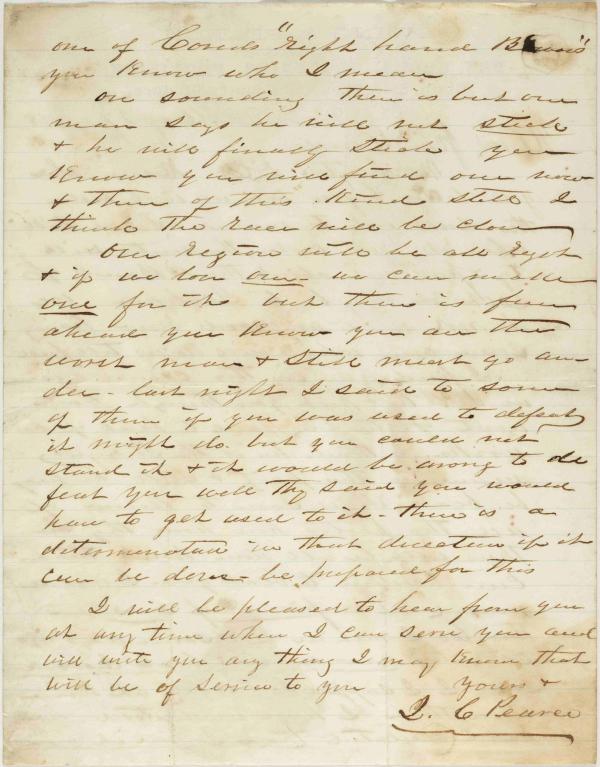 one of Couds "Right hand Bowers"
you Know who I mean
on sounding there is but one
man says he will not stick
& he will finally Stick you
Know you will find one now
& then of this Kind still I
think the race will be close
Our Region will be all right
& if we lose one we can make
one for it but there is fun
ahead you Know you are the
worst man & Still must go un-
der - last night I said to some
of them if you was used to defeat
it might do but you could not
stand it & it would be wrong to de
feat you well they said you would
have to get used to it - there is a
determination in that direction if it
can be done - be prepared for this
I will be pleased to hear from you
at any time when I can serve you and
will write you any thing I may Know that
will be of service to you yours &
C Pearce